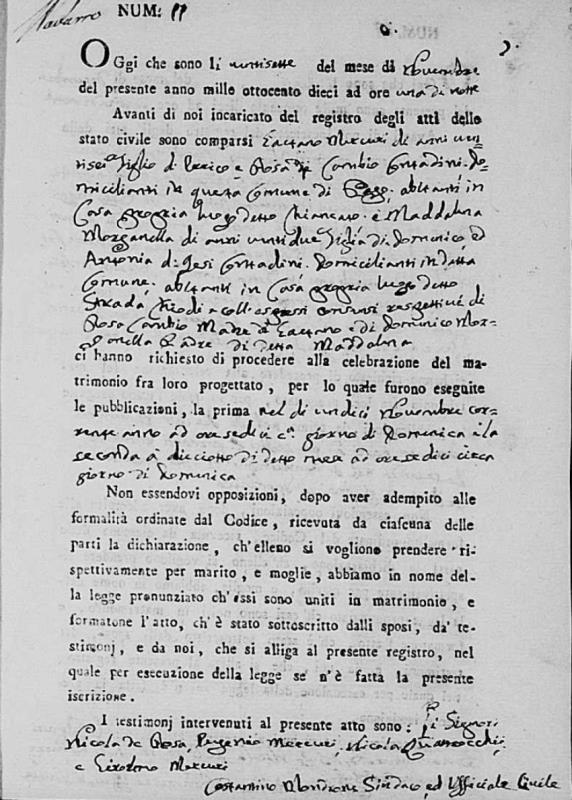 Navarro NUM: 11
OGgi che sono li ventisette del mese di Novembre
del presente anno mille ottocento dieci ad ore una di notte
Avanti di noi incaricato del registro degli atti dello
stato civile sono comparsi Gaetano Mercuri di anni ven-
tisei figlio di e Rosa di Cambio Contadini. Do-
micilianti in questa Comune di abitanti in
Casa propria luogo detto e Maddalena
Morganella di anni ventidue figlia di Domenico, ed
Antonia di Jesi Contadini. Domicilianti in detta
Comune. abitanti in Casa propria luogo detto
Strada coll'espressi consensi respettivi di
Rosa Cambio Madre di Gaetano e di Domenico Mor-
ganella Padre di detta Maddalena
ci hanno richiesto di procedere alla celebrazione del ma-
trimonio fra loro progettato, per lo quale furono eseguite
le pubblicazioni, la prima nel dì undici Novembre cor-
rente anno ad ore sedici c.a giorno di Domenica e la
seconda a dieciotto di detto mese ad ore sedici circa
giorno di Domenica
Non essendovi opposizioni, dopo aver adempito alle
formalità ordinate dal Codice, ricevuta da ciascuna delle
parti la dichiarazione, ch'elleno si vogliono prendere ri-
spettivamente per marito, e moglie, abbiamo in nome del-
la legge pronunziato ch'essi sono uniti in matrimonio, e
formatone l'atto, ch'è stato sottoscritto dalli sposi, da' te-
stimonj, e da noi, che si alliga al presente registro, nel
quale per esecuzione della legge se n'è fatta la presente
iscrizione.
I testimonj intervenuti al presente atto sono: li Signori
Nicola de Rosa, Eugenio Mercuri, Nicola
e Mercuri
Costantino Sindaco ed Ufficiale Civile